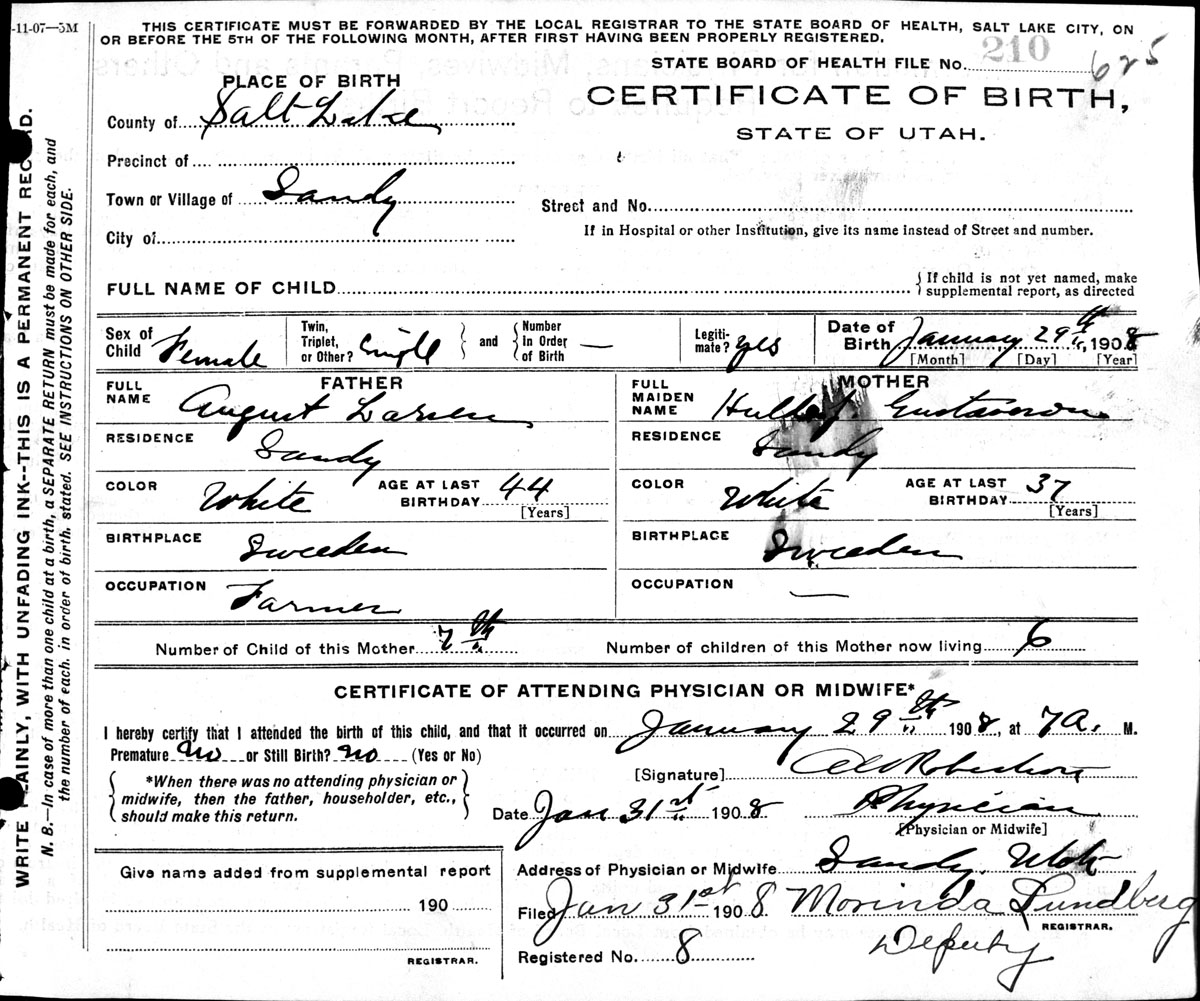 -11-07—5M
THIS CERTIFICATE MUST BE FORWARDED BY THE LOCAL REGISTRAR TO THE STATE BOARD OF HEALTH, SALT LAKE CITY, ON
OR BEFORE THE 5TH OF THE FOLLOWING MONTH, AFTER FIRST HAVING BEEN PROPERLY REGISTERED.
210
STATE BOARD OF HEALTH FILE No. 625
PLACE OF BIRTH
CERTIFICATE OF BIRTH,
STATE OF UTAH.
County of Salt Lake
Precinct of
Town or Village of Sandy
Street and No.
City of
If in Hospital or other Institution, give its name instead of Street and number.
FULL NAME OF CHILD
{If child is not yet named, make
supplemental report, as directed
Sex of Child Female
Twin, Triplet, or Other? Single } and { Number In Order of Birth —
Legitimate? yes
Date of Birth January 29th, 1908
[Month] [Day] [Year]
FATHER
FULL NAME August Larsen
RESIDENCE Sandy
COLOR White AGE AT LAST BIRTHDAY 44
[Years]
BIRTHPLACE Sweeden
OCCUPATION Farmer
MOTHER
FULL MAIDEN NAME Gustaverson
RESIDENCE Sandy
COLOR White AGE AT LAST BIRTHDAY 37
[Years]
BIRTHPLACE Sweeden
OCCUPATION —
Number of Child of this Mother 7th
Number of children of this Mother now living 6
CERTIFICATE OF ATTENDING PHYSICIAN OR MIDWIFE*
I hereby certify that I attended the birth of this child, and that it occurred on January 29th 1908, at 7 A. M.
Premature No or Still Birth? No (Yes or No)
{ *When there was no attending physician or
midwife, then the father, householder, etc.,
should make this return. }
[Signature] Robertson
Date Jan 31st 1908 Physician
[Physician or Midwife]
Give name added from supplemental report
190
REGISTRAR.
Address of Physician or Midwife Sandy, Utah
Filed Jan 31st 1908 Morinda Lundberg
REGISTRAR.
Registered No. 8 Deputy
WRITE PLAINLY, WITH UNFADING INK--THIS IS A PERMANENT RECORD.
N. B.—In case of more than one child at a birth, a SEPARATE RETURN must be made for each, and
the number of each, in order of birth, stated. SEE INSTRUCTIONS ON OTHER SIDE.